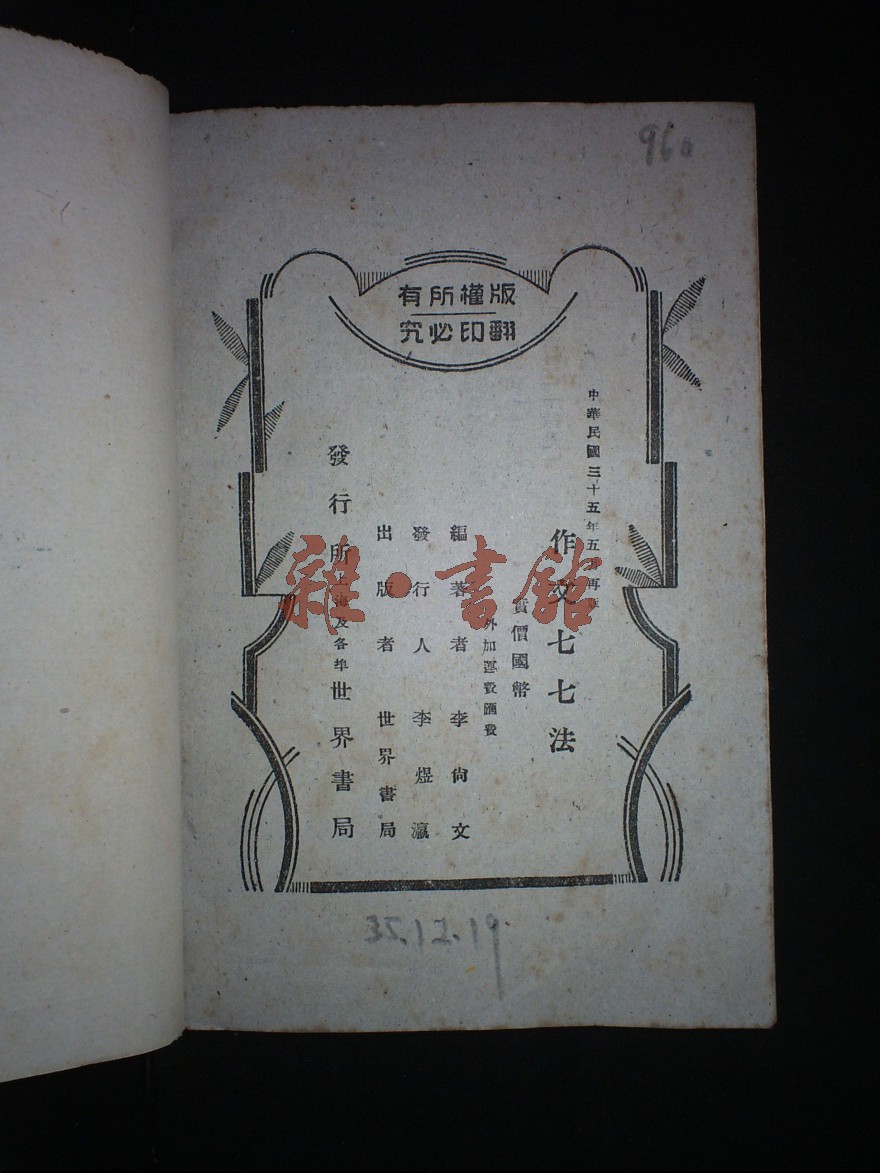 960
版權所有
翻印必究
中華民國三十五年五月再版
作文七七法
實價國幣
外加運費匯費
編著者 李尙文
發行人 李煜瀛
出版者 世界書局
發行所 上海及各埠 世界書局
雜·書館
35.12.19.